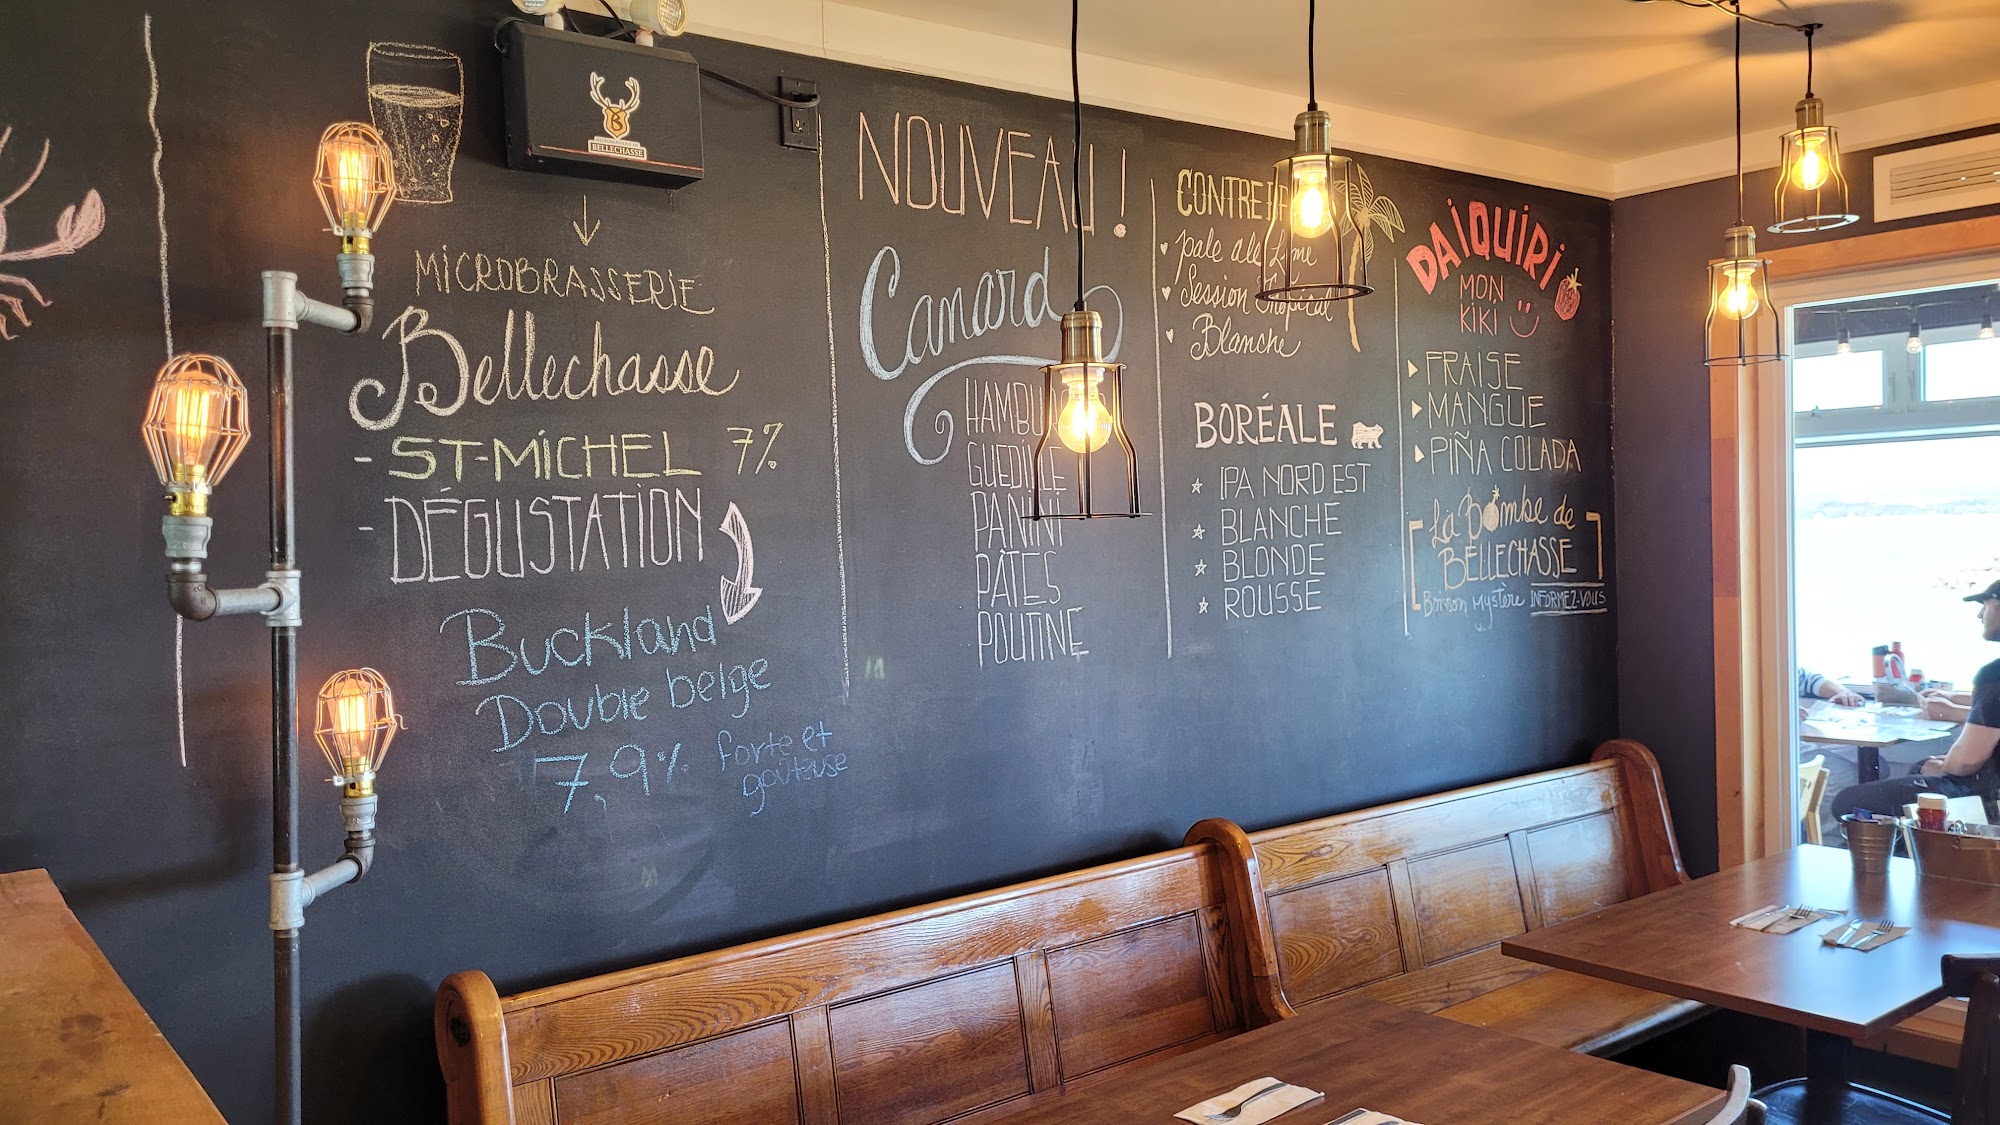 B
BELLECHASSE
MICROBRASSERIE
Bellechasse
- ST-MICHEL 7%
- DÉGUSTATION
Buckland
Double beige
7,9% forte et
goûteuse
NOUVEAU!
Canard
HAMBURG
GUEDILLE
PANINI
PÂTES
POUTINE
pale ale Lime
Session Tropical
Blanche
BORÉALE
IPA NORD EST
BLANCHE
BLONDE
ROUSSE
DAIQUIRI
MON
KIKI
FRAISE
MANGUE
PIÑA COLADA
La Bombe de
BELLECHASSE
Boisson Mystère INFORMEZ-VOUS